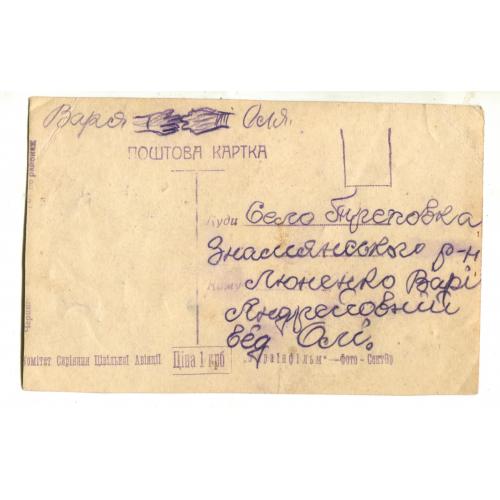 Варя Оля.
ПОШТОВА КАРТКА
Куди Село Трєповка
Знамянського р-н
Кому Люненко Варі
Андреєвній
від Олі.
Комітет Сприяння Цівільної Авіяції Ціна 1 крб "Українфільм" – Фото – Сектор